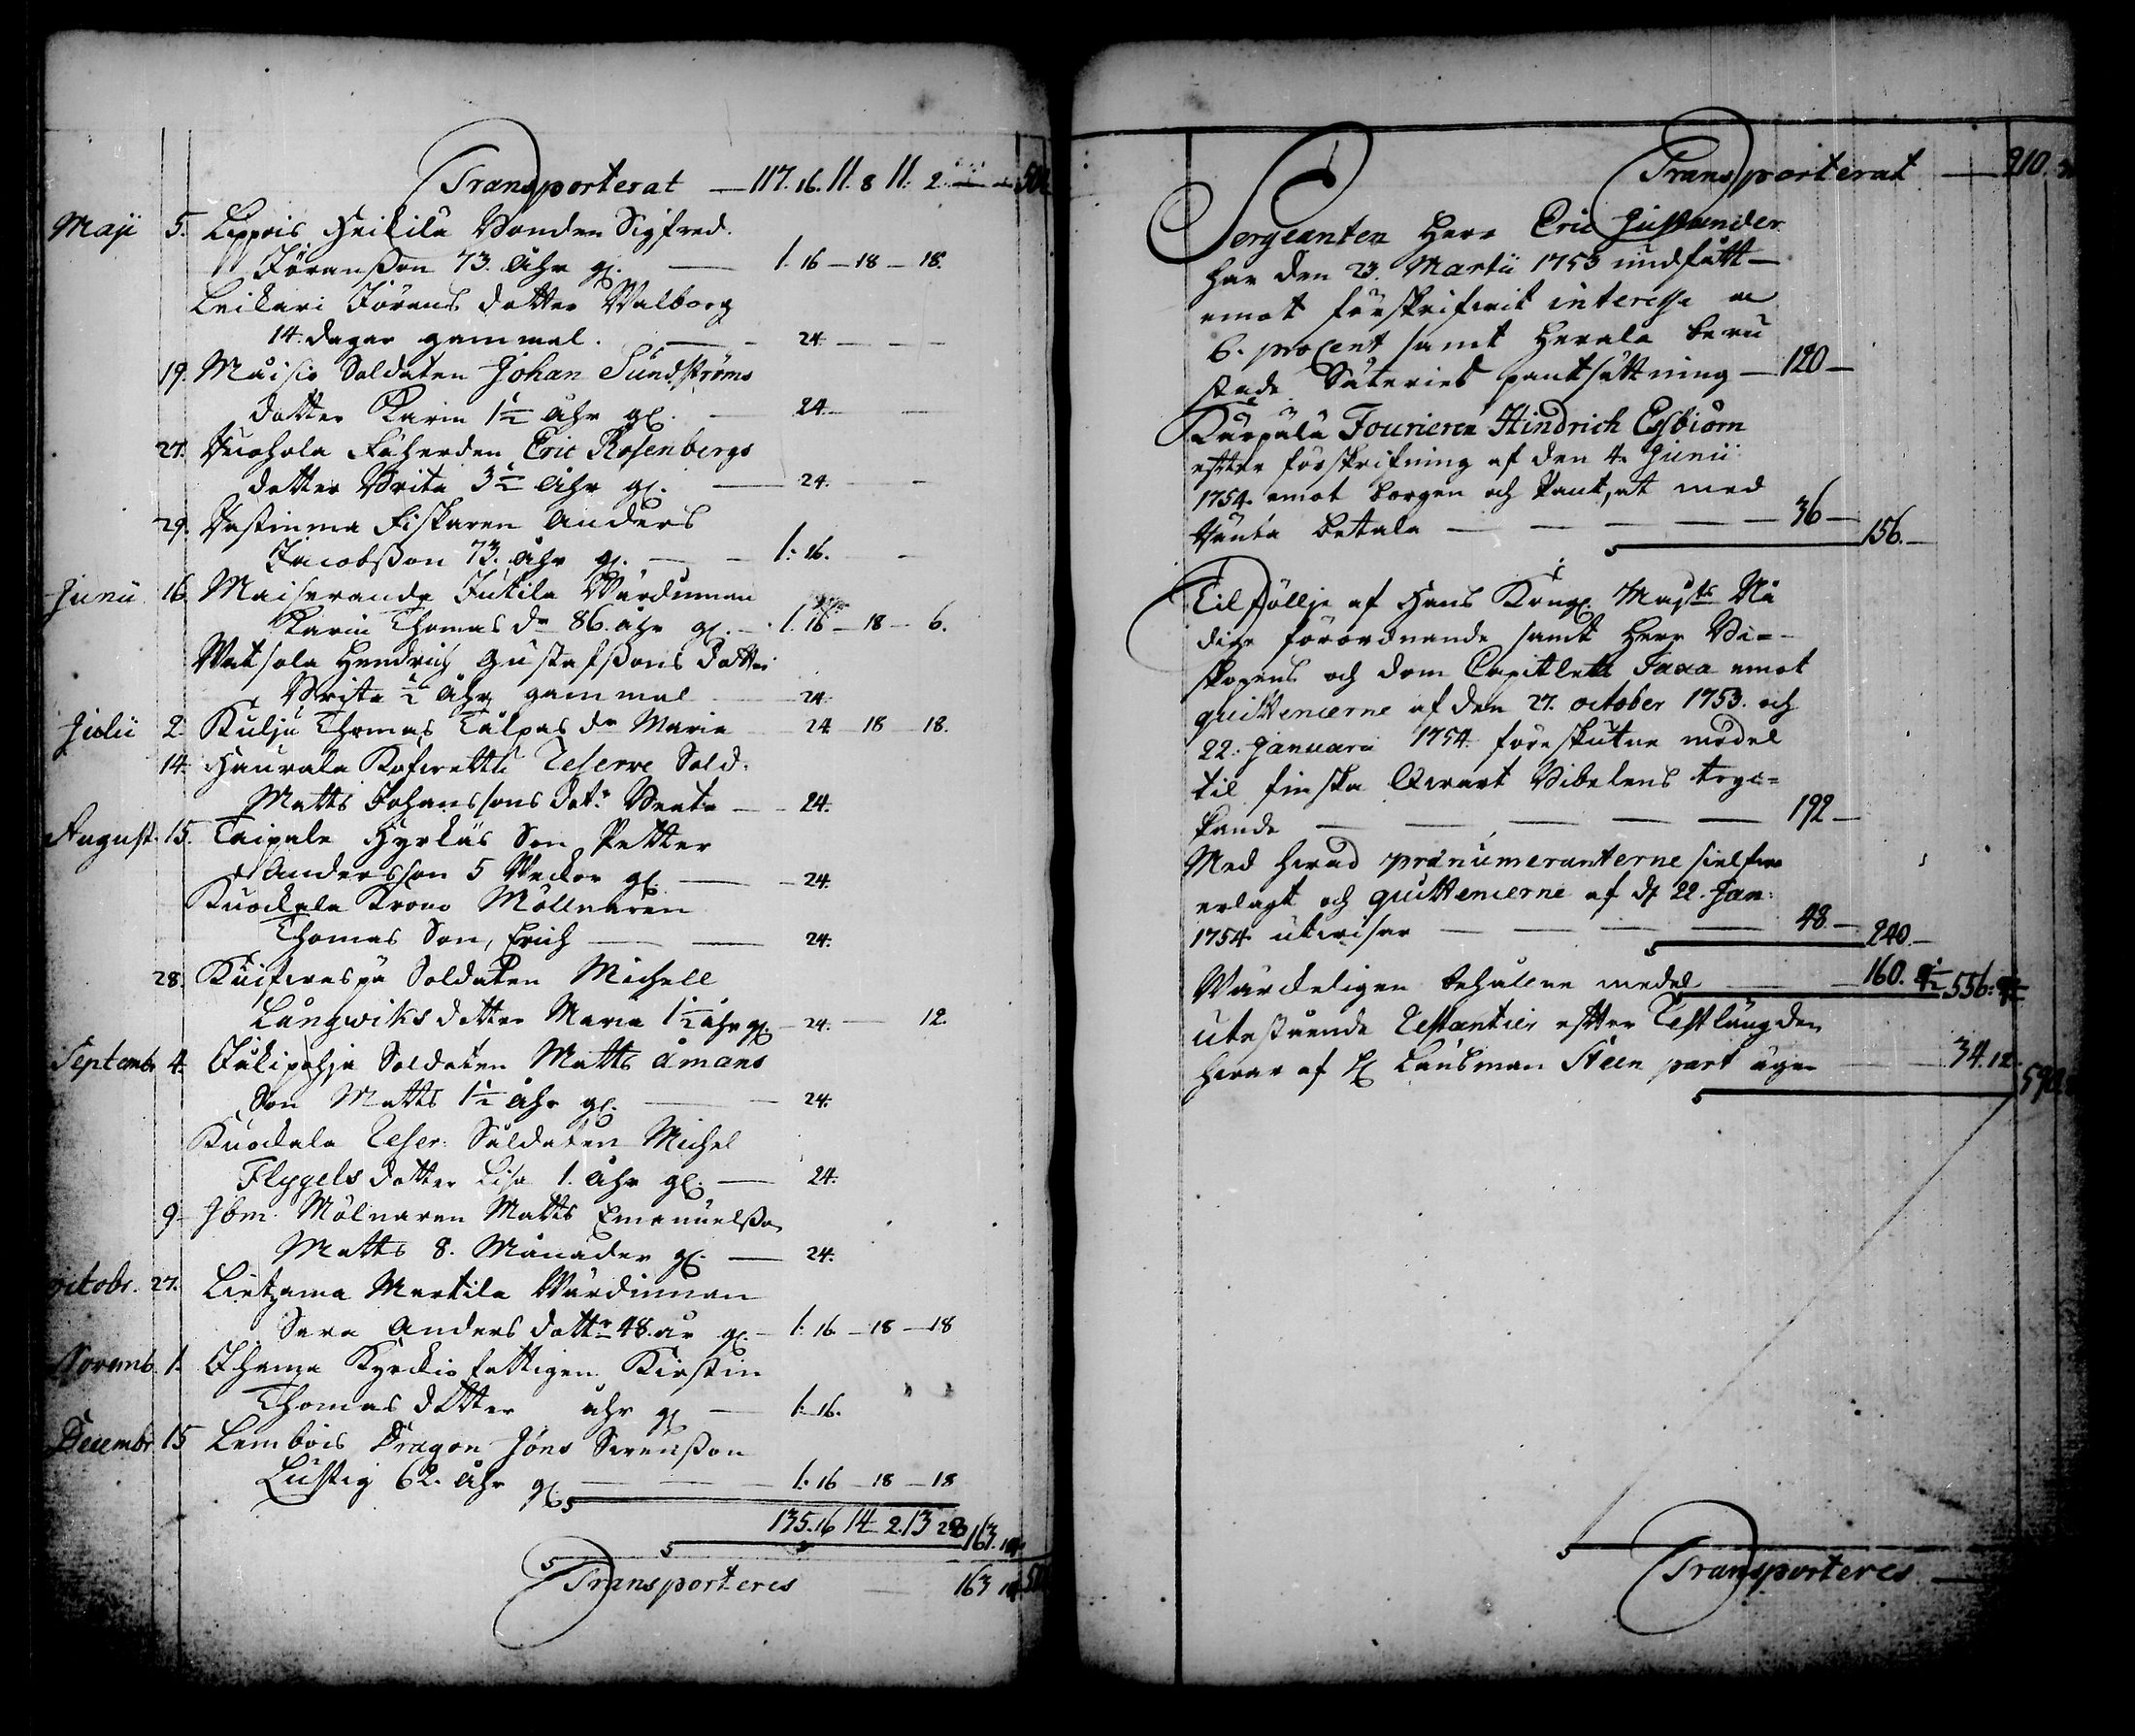 Transporterat — 117. 16. 11. 8 11. 2.
Maji 5. Lippois Heikilä Bonden Sigfred
Jöransson 73. åhr gl. — 1. 16 — 18 — 18.
Leikari Jörens dotter Walborg
14. dagar gammal. — 24. —
19. Maisio Soldaten Johan Sundströms
dotter Karin 1½ åhr gl. — 24. —
27. Fäherden Eric Rosenbergs
dotter Brita 3½ åhr gl. — 24. —
29. Fiskaren Anders
Jacobsson 73. åhr gl. — 1: 16. —
Junii 16. Jutila Värdinnan
Karin Thomas dr 86. åhr gl. — 1. 16 — 18 — 6.
Hendrich Gustafssons dotter
Brita ½ åhr gammal 24.
Julii 2. Kulju Thomas Talpas dr Maria 24 — 18 — 18.
14. Haurala Reserve Sold.
Matts Johanssons dotr Beata — 24.
August. 15. Taipale Hyrkäs Son Petter
Andersson 5 Veckor gl. — 24.
Kuockala Krono Möllnaren
Thomas Son, Erich — 24.
28. Soldaten Michell
Långwiks dotter Maria 1½ åhr gl. — 24. — 12.
Septembr 4. Jälipohja Soldaten Matts Åmans
Son Matts 1½ åhr gl. — 24.
Kuockala Reser: Soldaten Michel
Flygels dotter Lisa 1. åhr gl. — 24.
9. Jbm. Mölnaren Matts Emanuelsson
Matts 8. Månader gl. — 24.
octobr. 27. Lietzama Martila Wärdinnan
Sara Anders dottr 48. år gl. — 1: 16 — 18 — 18
Novemb. 1. Kyrckio fattigen Kirstin
Thomas dotter åhr gl — 1: 16.
Decembr 15 Lembois Dragon Jöns Svensson
Lustig 62. åhr gl. — 1: 16 — 18 — 18
135. 16 14 2. 13 163.
Transporteres — 163
Transporterat — 210.
Sergeanten Herr Eric
har den 23. Martii 1753 undfått
emot förskrifvit interesse a
6. procent samt Herrala
Säteries pantsättning — 120 —
Kurpala Fourieren Hindrich Esbiörn
efter förskrifning af den 4. Junii
1754. emot borgen och Pant, at med
Ränta betala — 36 — 156. —
Til följje af Hans Kongl. Majts Nå
dige förordnande samt Herr Bi=
skopens och Dom Capitlets Taxa emot
quittencierne af den 27. october 1753. och
22. Januarii 1754. förskutne medel
til finska Qvart Bibelens tryc=
kande — 192 —
Med hvad prænumeranterne sielfve
erlagt och quittencierne af d 22. Jan:
1754 utvisar — 48. — 240. —
Wärckeligen behålne medel — 160. 556:
Utestående Restantier efter Restlängden
hvaraf Länsman Steen part äger — 34. 12.
590.
Transporteres —